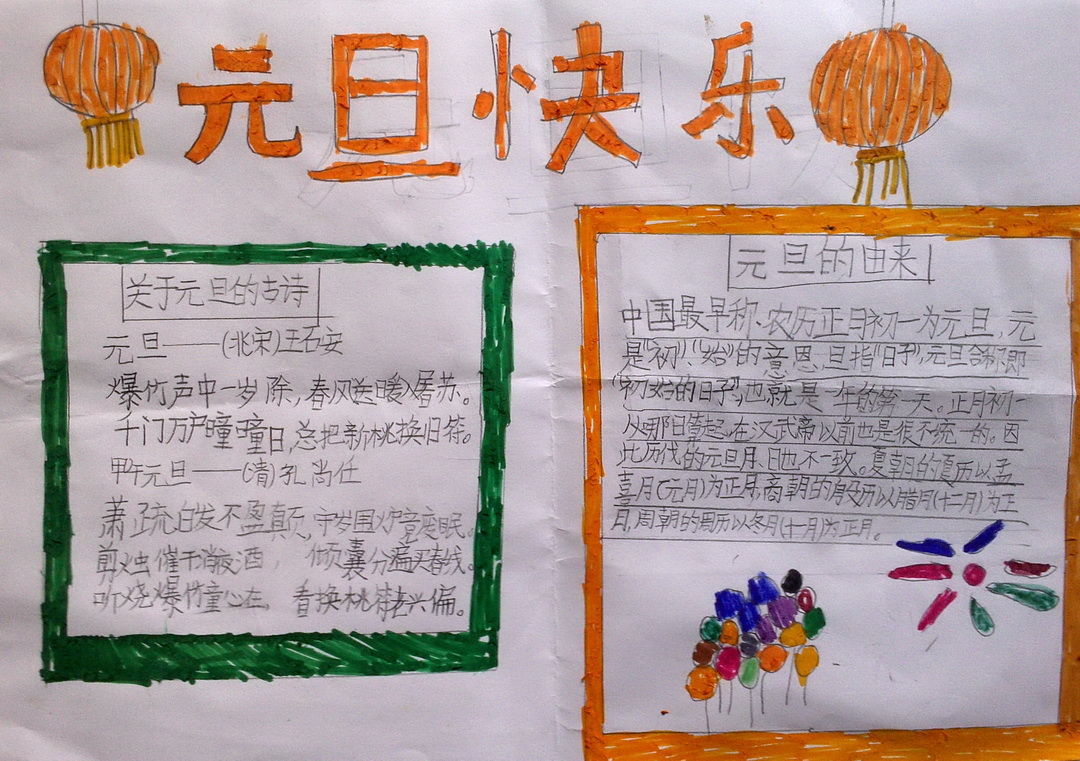 元旦快乐
关于元旦的古诗
元旦——(北宋)王石安
爆竹声中一岁除,春风送暖入屠苏。
千门万户曈曈日,总把新桃换旧符。
甲午元旦——(清)孔尚任
萧疏白发不盈颠,守岁围炉竟废眠。
剪烛催干消夜酒,倾囊分遍买春钱。
听烧爆竹童心在,看换桃符老兴偏。
元旦的由来
中国最早称、农历正月初一为元旦,元
是“初”、“始”的意思,旦指“日子”,元旦合称即
“初始的日子”,也就是一年的第一天。正月初一
从那日算起,在汉武帝以前也是很不统一的。因
此历代的元旦月、日也不一致。夏朝的夏历以孟
喜月(元月)为正月,商朝的殷历以腊月(十二月)为正
月,周朝的周历以冬月(十一月)为正月。